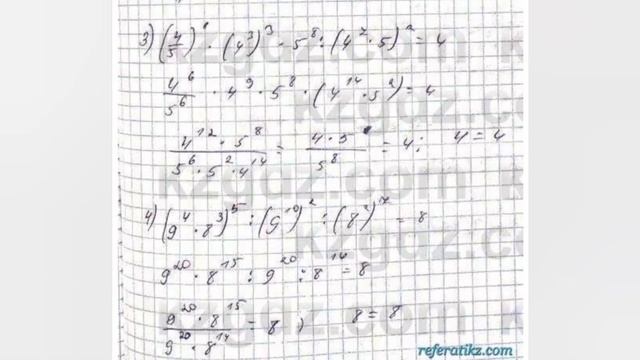 3) (4/5)⁶ · (4³)³ · 5⁸ : (4⁷ · 5)² = 4
4⁶/5⁶ · 4⁹ · 5⁸ · (4¹⁴ · 5²) = 4
4¹² · 5⁸ / 5⁶ · 5² · 4¹⁴ = 4 · 5⁸ / 5⁸ = 4; 4 = 4
4) (9⁴ · 8³)⁵ : (9¹⁰)² : (8²)⁷ = 8
9²⁰ · 8¹⁵ : 9²⁰ : 8¹⁴ = 8
9²⁰ · 8¹⁵ / 9²⁰ · 8¹⁴ = 8 ) 8 = 8
kzgaz.com
referatikz.com